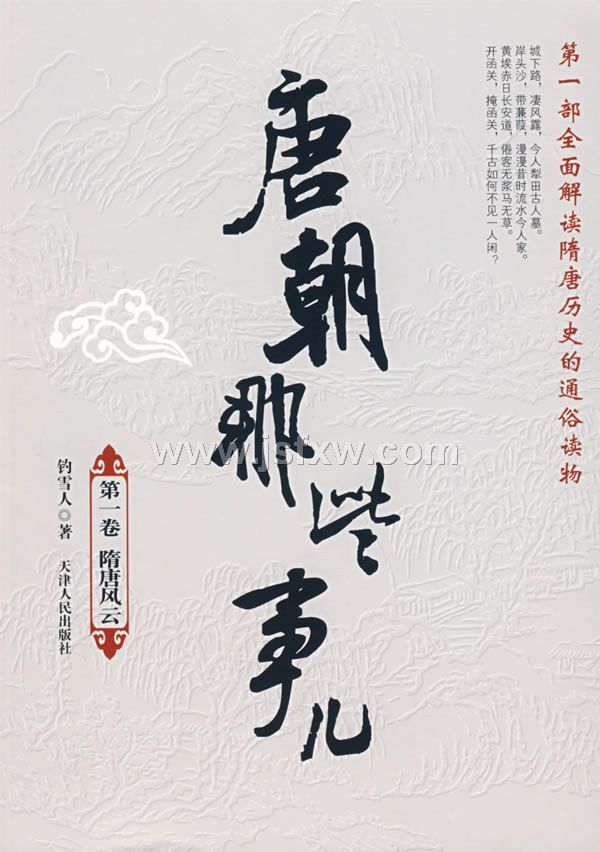 第一部全面解读隋唐历史的通俗读物
城下路，凄风露，今人犁田古人墓。
岸头沙，带蒹葭，漫漫昔时流水今人家。
黄埃赤日长安道，倦客无浆马无草。
开函关，掩函关，千古如何不见一人闲？
唐朝那些事儿
第一卷 隋唐风云
钓雪人◎著 天津人民出版社
www.jsfxw.com